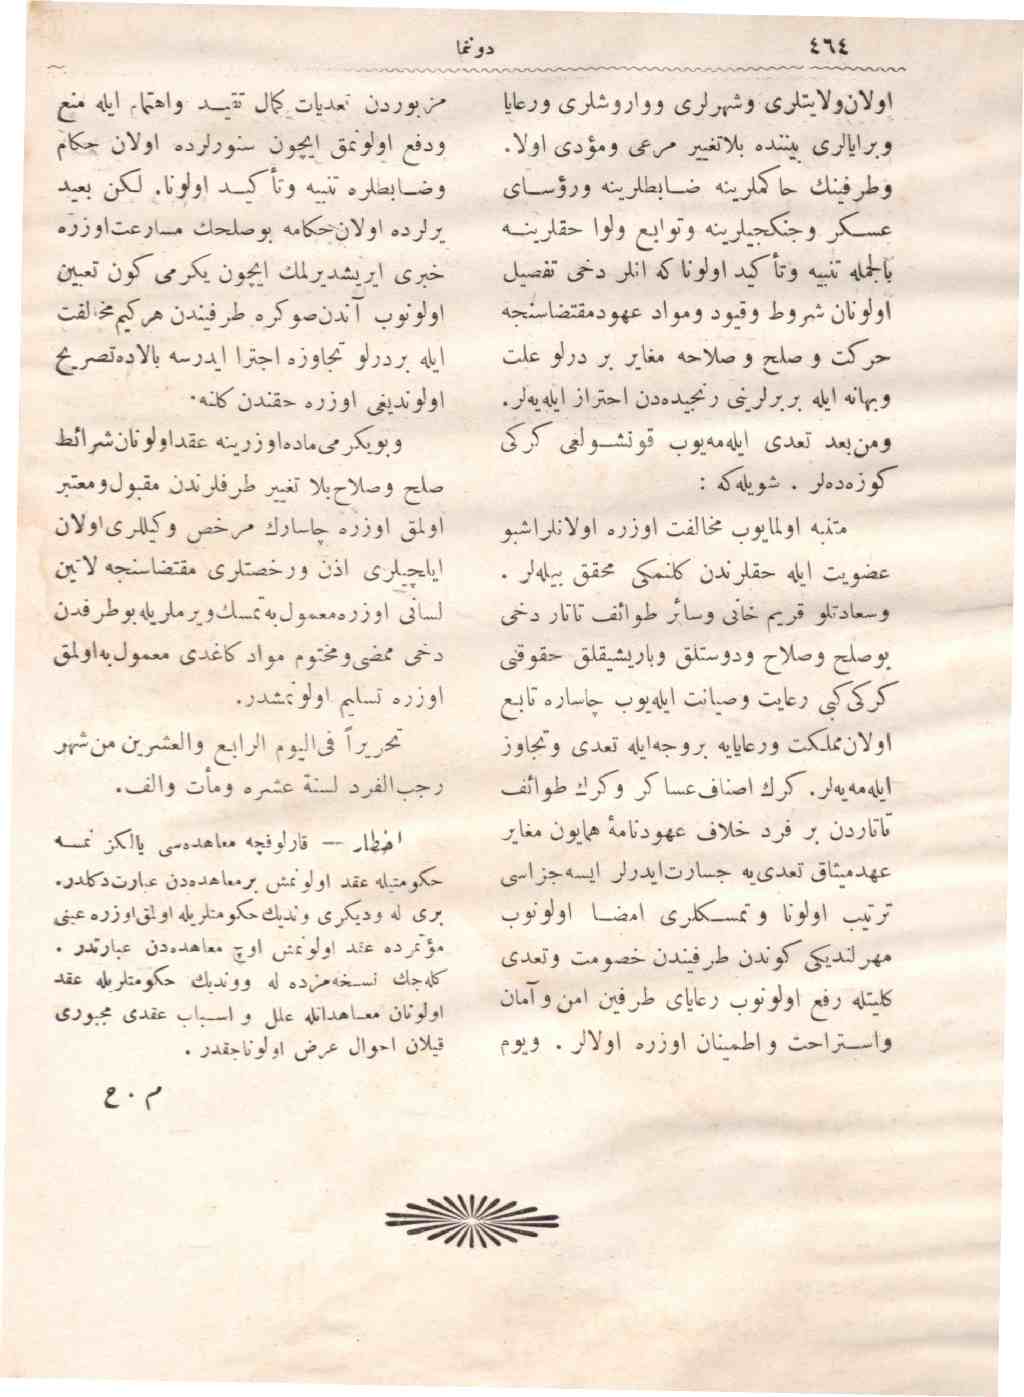 ٤٦٤
دونما
اولان ولایتلری وشهرلری وواروشلری ورعایا
وبرایالری بیننده بلاتغییر مرعی ومؤدی اولا.
وطرفینك حاکملرینه ضـابطلرینه ورؤسـای
عسـکر وجنکجیلرینه وتوابع ولوا حقلرینـه
بالجمله تنبیه وتأکید اولونا که انلر دخی تفصیل
اولونان شروط وقیود ومواد عهود مقتضاسنجه
حرکت و صلح و صلاحه مغایر بر درلو علت
وبهانه ایله بر برلرینی رنجیده‌دن احتراز ایله‌یه‌لر.
ومن‌بعد تعدی ایله‌مه‌یوب قونشـولغی کرکی
کوزه‌ده‌لر . شویله‌که :
متنبه اولمایوب مخالفت اوزره اولانلر اشبو
عضویت ایله حقلرندن کلنمکی محقق بیله‌لر .
وسعادتلو قریم خانی وسائر طوائف تاتار دخی
بوصلح وصلاح ودوستلق وباریشیقلق حقوقنی
کرکی کبی رعایت وصیانت ایله‌یوب چاساره تابع
اولان مملکت ورعایایه بروجهله تعدی وتجاوز
ایله‌مه‌یه‌لر. کرك اصناف عساکر وکرك طوائف
تاتاردن بر فرد خلاف عهودنامهٔ همایون مغایر
عهدمیثاق تعدی‌یه جسارت ایدرلر ایسه جزاسی
ترتیب اولونا و تمسـکلری امضـا اولونوب
مهرلندیکی کوندن طرفیندن خصومت وتعدی
کلیتله رفع اولونوب رعایای طرفین امن و آمان
واسـتراحت و اطمینان اوزره اولالر . ویوم
مزبوردن تعدیات کمال تقیـد واهتمام ایله منع
ودفع اولونمق ایچون سنورلرده اولان حکام
وضـابطلره تنبیه وتأکیـد اولونا. لکن بعید
یرلرده اولان حکامه بوصلحك مسارعت اوزره
خبری ایریشدیرلمك ایچون یکرمی کون تعیین
اولونوب آندن صوکره طرفیندن هرکیم مخالفت
ایله بردرلو تجاوزه اجترا ایدرسه بالاده تصریح
اولوندیغی اوزره حقندن کلنه.
وبویکرمی ماده اوزرینه عقد اولونان شرائط
صلح وصلاح بلا تغییر طرفلرندن مقبول ومعتبر
اولمق اوزره چاسارك مرخص وکیللری اولان
ایلچیلری اذن ورخصتلری مقتضاسنجه لاتین
لسانی اوزره معمول به تمسك ویرملریله بوطرفدن
دخی ممضی ومختوم مواد کاغدی معمول به اولمق
اوزره تسلیم اولونمشدر.
تحریراً فی الیوم الرابع والعشرین من شهر
رجب الفرد لسنة عشره ومأت والف.
اخطار — قارلوفچه معاهده‌سی یالکز نمسـه
حکومتیله عقد اولونمش برمعاهده‌دن عبارت دکلدر.
بری له ودیکری وندیك حکومتلریله اولمق اوزره عینی
مؤتمرده عقد اولونمش اوچ معاهده‌دن عبارتدر .
کله‌جك نسـخه‌مزده له ووندیك حکومتلریله عقد
اولونان معـاهداتله علل و اسـباب عقدی مجبوری
قیلان احوال عرض اولوناجقدر .
م . ح